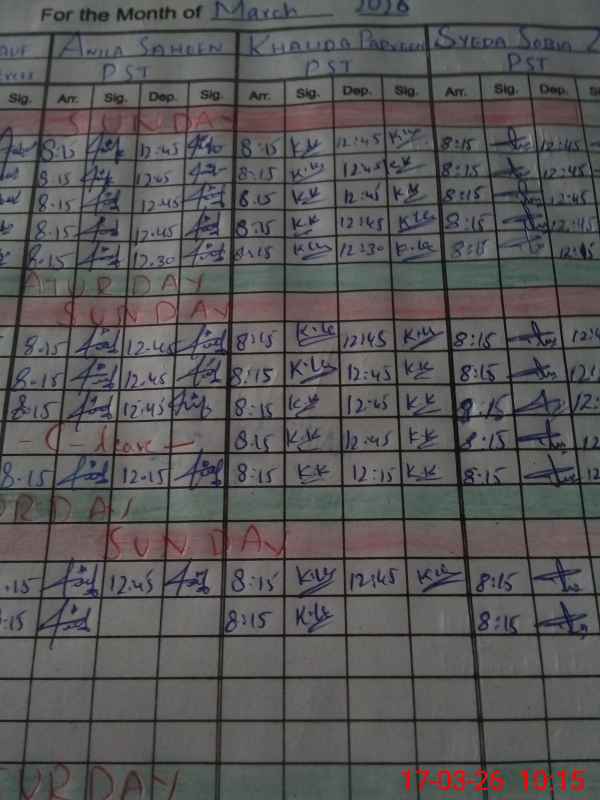 For the Month of March 2026
ANILA SAHEEN KHALIDA PARVEEN SYEDA SOBIA
PST PST PST
Sig. Arr. Sig. Dep. Sig. Arr. Sig. Dep. Sig. Arr. Sig. Dep.
SUNDAY
8:15 12:45 8:15 K.K 12:45 K.K 8:15 12:45
8.15 12.45 8:15 K.K 12:45 K.K 8:15 12:45
8.15 12.45 8:15 K.K 12:45 K.K 8:15 12:45
8.15 12.45 8:15 K.K 12:45 K.K 8:15 12:45
8.15 12.30 8:15 K.K 12:30 K.K 8:15
ATURDAY
SUNDAY
8.15 12.45 8:15 K.K 12:45 K.K 8:15
8.15 12.45 8:15 K.K 12:45 K.K 8:15
8.15 12.45 8:15 K.K 12:45 K.K 8:15
- C - leave - 8:15 K.K 12:45 K.K 8:15
8.15 12.15 8:15 K.K 12:15 K.K 8:15
RDAY
SUNDAY
.15 12:45 8:15 K.K 12:45 K.K 8:15
.15 8:15 K.K 8:15
URDAY
17-03-26 10:15